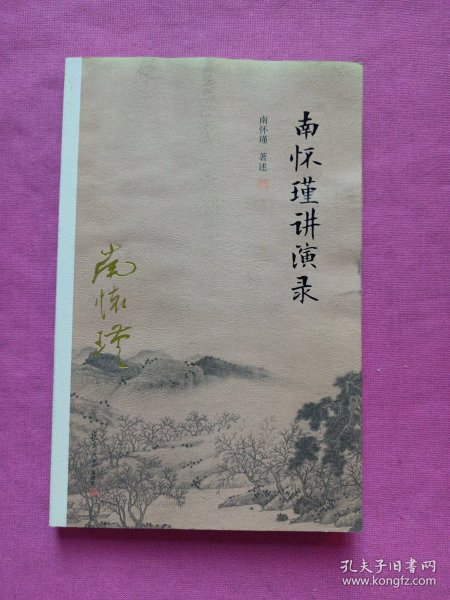 南怀瑾讲演录
南怀瑾 著述
南怀瑾
孔夫子旧书网
www.kongfz.com